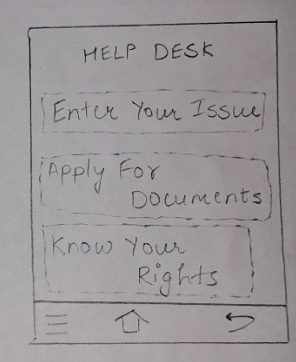 HELP DESK
Enter Your Issue
Apply For
Documents
Know Your
Rights